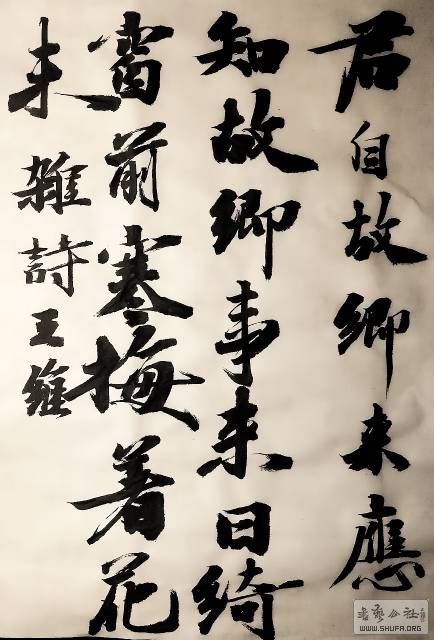 君自故鄉来應
知故鄉事来日綺
窗前寒梅着花
未 雜詩 王維
书艺公社
WWW.SHUFA.ORG